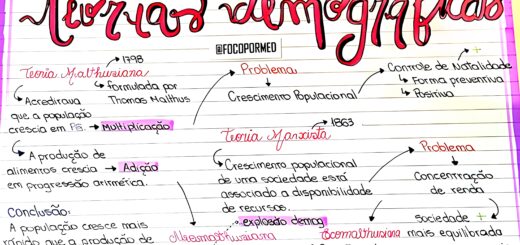 Teorias demográficas
@FOCOPORMED
1798
Teoria Malthusiana
formulada por
Thomas Malthus
Acredirava
que a população
crescia em PG. → Multiplicação
A produção de
alimentos crescia → Adição
em progressão arimérica.
Conclusão:
A população cresce mais
rápido que a produção de
Problema
Crescimento Populacional
+
Controle de Natalidade
Forma preventiva
Positiva
1863
Teoria Marxista
Crescimento populacional
de uma sociedade está
associado a disponibilidade
de recursos.
explosão demog.
Neomalthusiana
Problema
Concentração
de renda
Sociedade +
Ecomalthusiana mais equilibrada